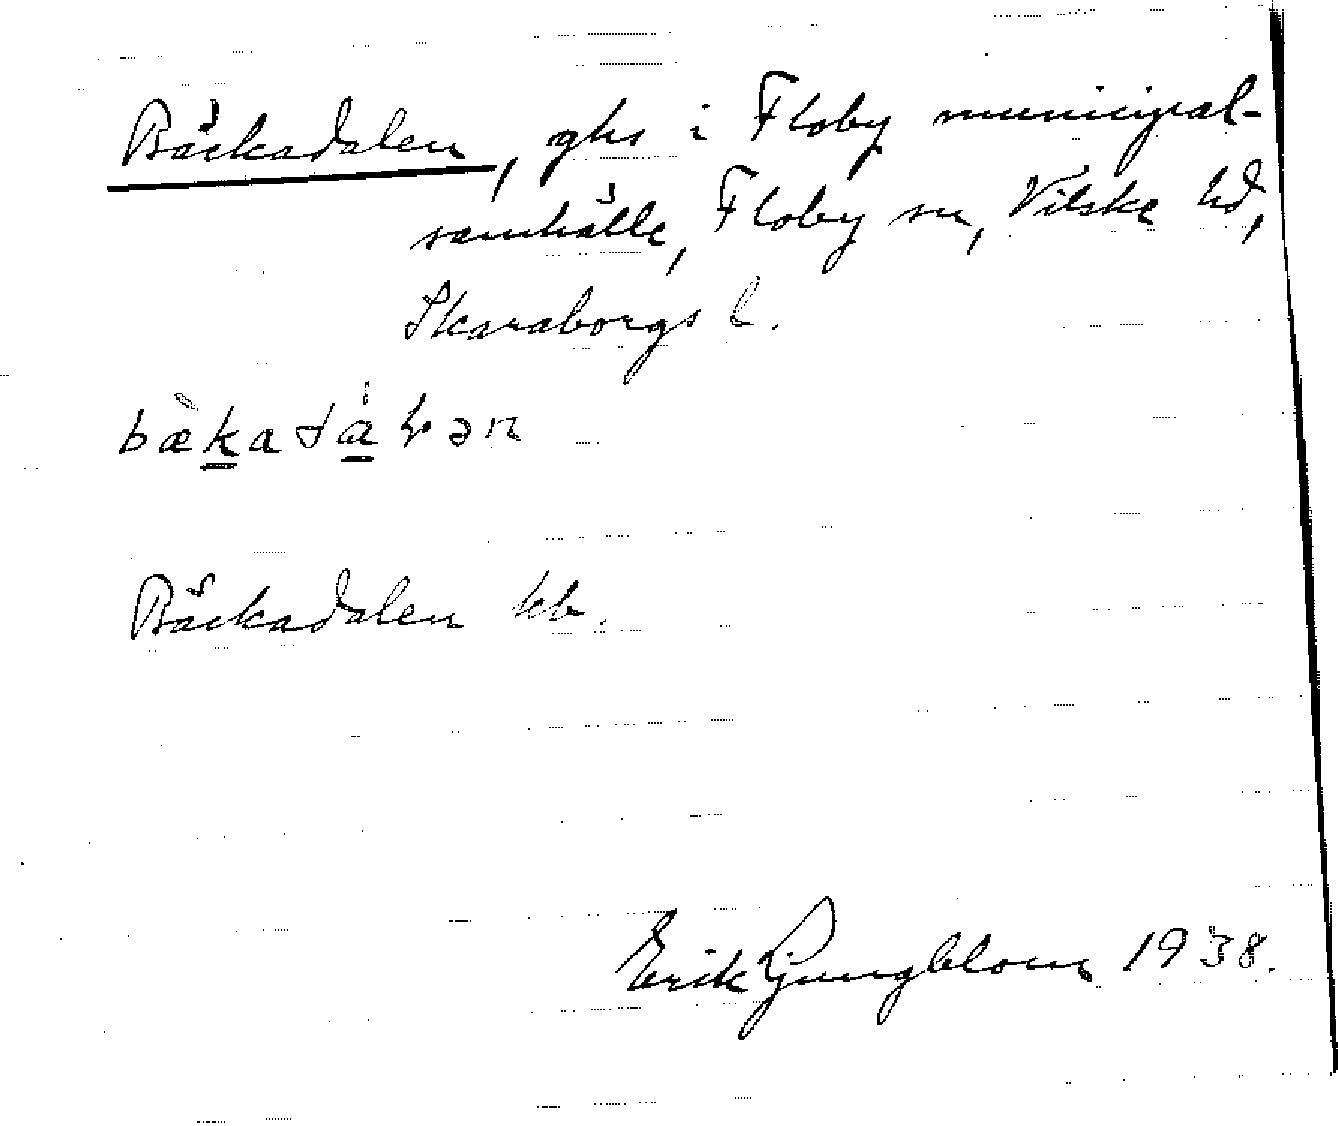 Bäckadalen, ghs i Floby municipal-
samhälle, Floby sn, Vilske hd,
Skaraborgs l.
bæ̀kadáɫən
Bäckadalen kb.
Erik Ljungblom 1938.